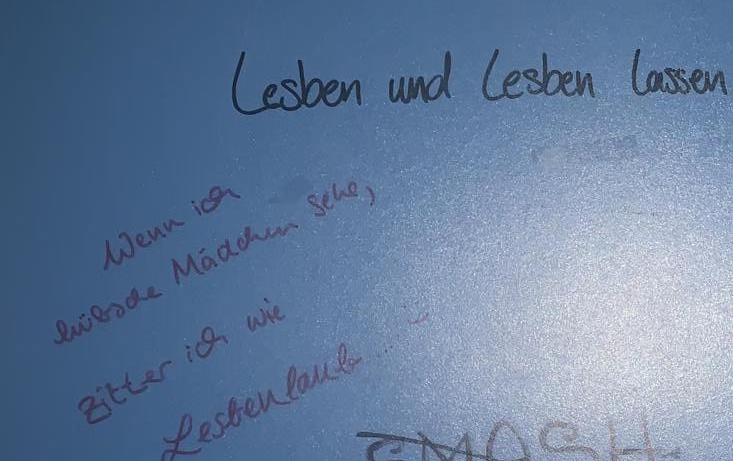 Lesben und Lesben lassen
Wenn ich
hübsche Mädchen sehe,
zitter ich wie
Lesbenlaub
SMASH